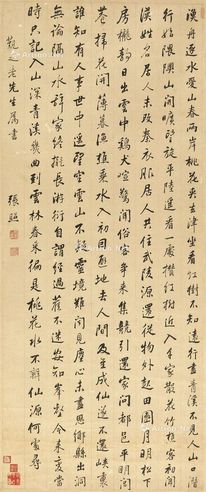 漁舟逐水愛山春兩岸桃花夾去津坐看紅樹不知遠行盡青溪不見人山口潛
行始隈隩山開曠望旋平陸遙看一處攢雲樹近入千家散花竹樵客初傳
漢姓名居人未改秦衣服居人共住武陵源還從物外起田園月明松下
房櫳靜日出雲中雞犬喧驚聞俗客爭來集競引還家問都邑平明閭
巷掃花開薄暮漁樵乘水入初因避地去人間及至成仙遂不還峽裏
誰知有人事世中遙望空雲山不疑靈境難聞見塵心未盡思鄉縣出洞
無論隔山水辭家終擬長游衍自謂經過舊不迷安知峰壑今來變當
時只記入山深青溪幾曲到雲林春來徧是桃花水不辨仙源何處尋
老先生屬書 張照